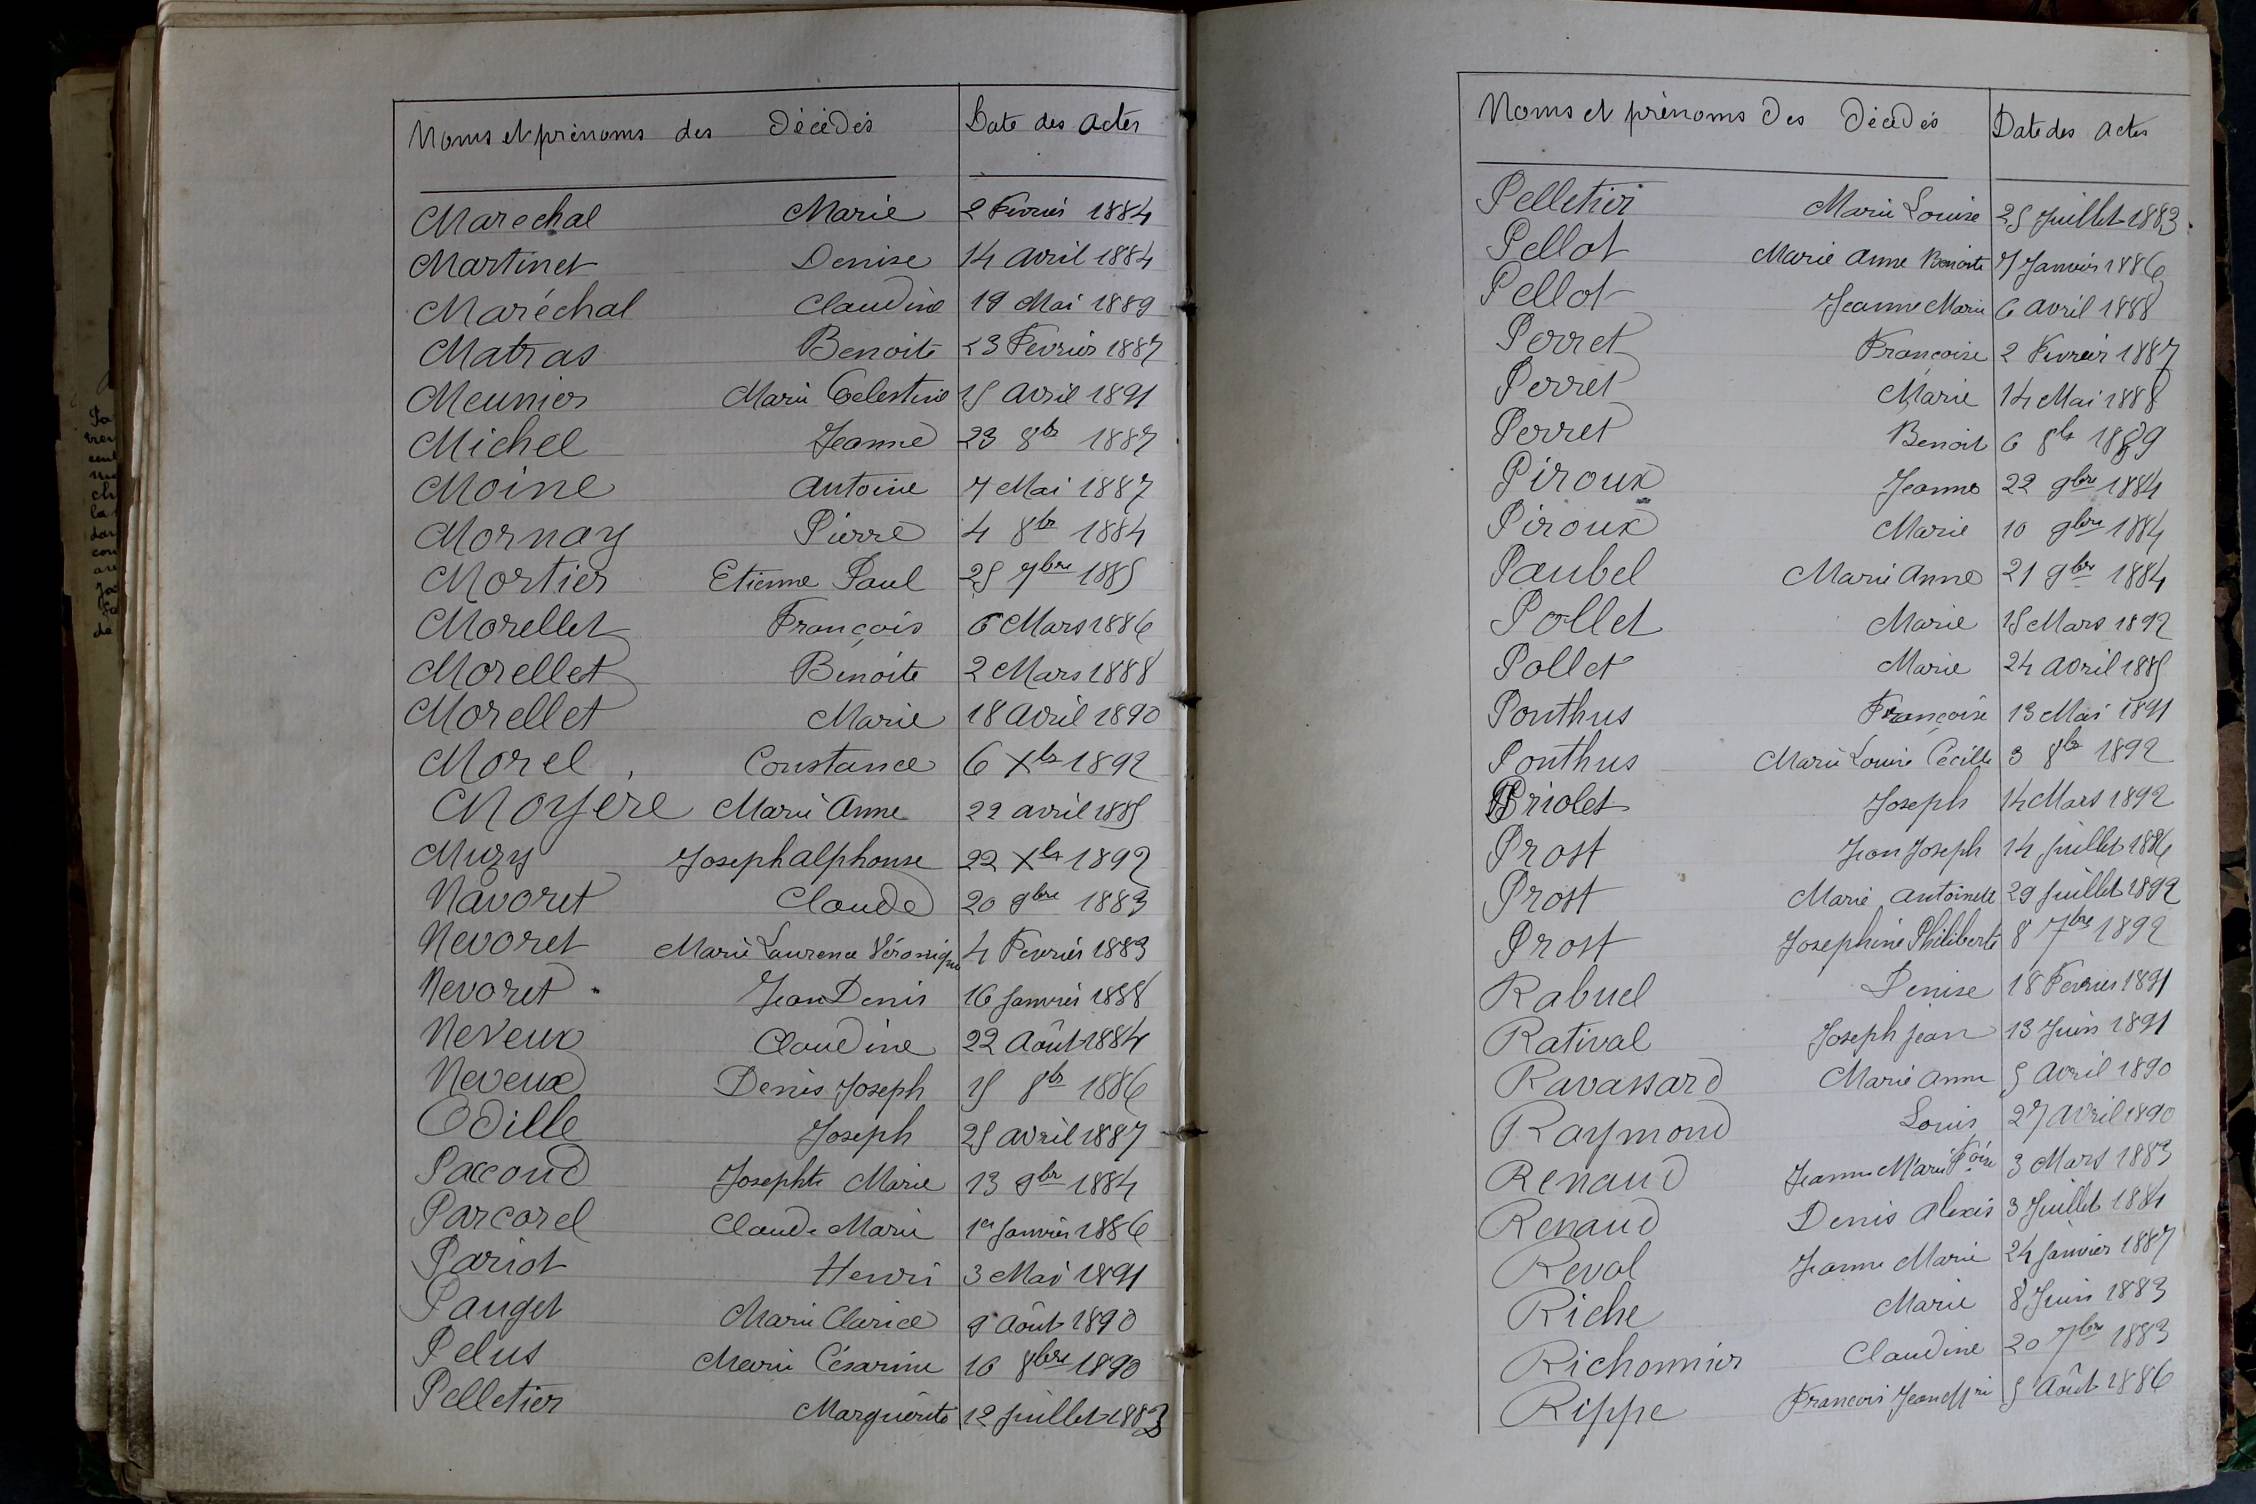 Noms et prénoms des Décédés Date des actes
Marechal Marie 2 Février 1884
Martinet Denise 14 avril 1884
Maréchal Claudine 19 Mai 1889
Matras Benoite 23 Février 1887
Meunier Marie Celestine 15 avril 1891
Michel Jeanne 23 8bre 1887
Moine Antoine 7 Mai 1887
Mornay Pierre 4 8bre 1884
Mortier Etienne Paul 25 7bre 1885
Morellet François 6 Mars 1886
Morellet Benoite 2 Mars 1888
Morellet Marie 18 avril 1890
Morel Constance 6 Xbre 1892
Moyere Marie Anne 22 avril 1885
Muzy Joseph Alphonse 22 Xbre 1892
Navoret Claude 20 9bre 1883
Nevoret Marie Laurence Véronique 4 Fevrier 1883
Nevoret Jean Denis 16 janvier 1888
Neveux Claudine 22 Août 1884
Neveux Denis Joseph 15 8bre 1886
Odille Joseph 25 avril 1887
Paccoud Josephte Marie 13 9bre 1884
Parcorel Claude Marie 1er janvier 1886
Pariot Henri 3 Mai 1891
Pauget Marie Clarice 9 Août 1890
Pelus Marie Césarine 16 8bre 1890
Pelletier Marguerite 12 juillet 1883
Noms et prénoms des Décédés Date des actes
Pelletier Marie Louise 25 juillet 1883
Pellot Marie Anne Benoite 7 Janvier 1886
Pellot Jeanne Marie 6 avril 1888
Perret Françoise 2 Fevrier 1887
Perret Marie 14 Mai 1888
Perret Benoit 6 8bre 1889
Piroux Jeanne 22 9bre 1884
Piroux Marie 10 9bre 1884
Paubel Marie Anne 21 9bre 1884
Pollet Marie 15 Mars 1892
Pollet Marie 24 avril 1885
Ponthus Françoise 13 Mai 1891
Ponthus Marie Louise Cécille 3 8bre 1892
Priolet Joseph 14 Mars 1892
Prost Jean Joseph 14 juillet 1886
Prost Marie Antoinette 29 juillet 1892
Prost Josephine Philiberte 8 7bre 1892
Rabuel Denise 18 Fevrier 1891
Ratival Joseph jean 13 Juin 1891
Ravassard Marie Anne 5 avril 1890
Raymond Louis 27 avril 1890
Renaud Jeanne Marie Foise 3 Mars 1883
Renaud Denis Alexis 3 Juillet 1884
Reval Jeanne Marie 24 janvier 1887
Riche Marie 8 Juin 1883
Richonnier Claudine 20 7bre 1883
Rippe François Jean 5 Août 1886